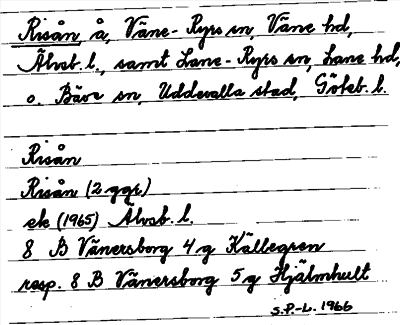 Risån å, Väne-Ryrs sn, Väne hd,
Älvsb. l., samt Lane-Ryrs sn, Lane hd,
o. Bäve sn, Uddevalla stad, Göteb. l.
Risån
Risån (2 ggr)
ek (1965) Älvsb. l.
8 B Vänersborg 4 g Källegren
resp. 8 B Vänersborg 5 g Hjälmhult
S.P.-L. 1966